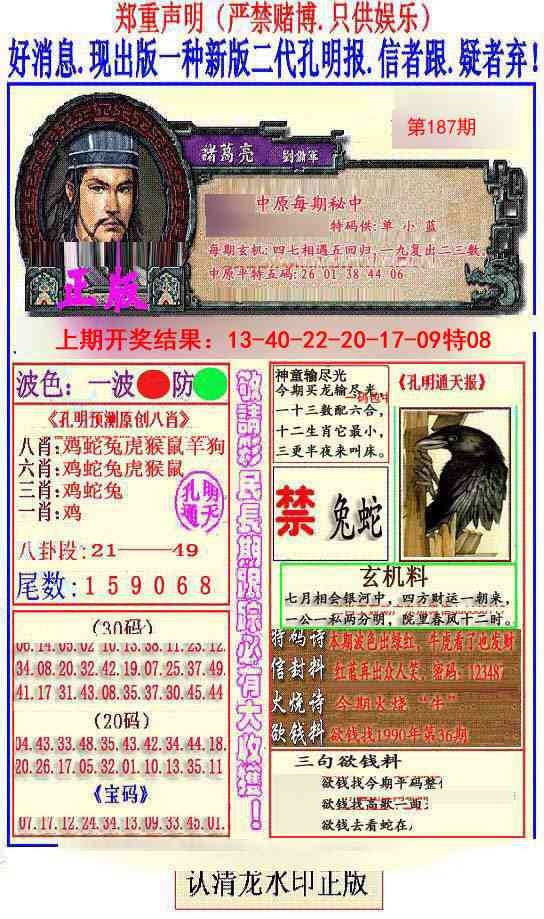 郑重声明（严禁赌博.只供娱乐）
好消息.现出版一种新版二代孔明报.信者跟.疑者弃!
第187期
諸葛亮
中原每期秘中
特码供:单小蓝
每期玄机:四七相遇五回归一二九复出二三数.
中原平特五码:26 01 38 44 06
正版
上期开奖结果：13-40-22-20-17-09特08
波色：一波 防
《孔明预测原创八肖》
八肖:鸡蛇兔虎猴鼠羊狗
六肖:鸡蛇兔虎猴鼠
三肖:鸡蛇兔
一肖:鸡
孔明
通天
八卦段:21——49
尾数:159068
(30码)
06.14.05.02.10.13.38.11.23.12
34.08.20.32.42.19.07.25.37.49
41.17.31.43.08.35.37.30.45.44
(20码)
04.43.33.48.35.43.42.34.44.18.
20.26.17.05.32.01.10.13.35.11
《宝码》
07.17.12.24.34.13.09.33.45.01.
敬請彩民長期跟踪必有大收獲！
神童输尽光
今期买龙输尽光,
一十三数配六合,
十二生肖它最小,
三更半夜来叫床。
《孔明通天报》
禁 兔蛇
玄机料
七月相会银河中，四方财运一朝来，
一公一私两分明，院里春风十二时。
特码诗 本期波色出绿红，牛虎看了也发财
信封料 红蓝再出众人笑，密码：123487
火烧诗 今期火烧“牛”
欲钱料 欲钱找1990年第36期
三句欲钱料
欲钱找今期平码整
欲钱找高歌一曲
欲钱去看蛇在
认清龙水印正版